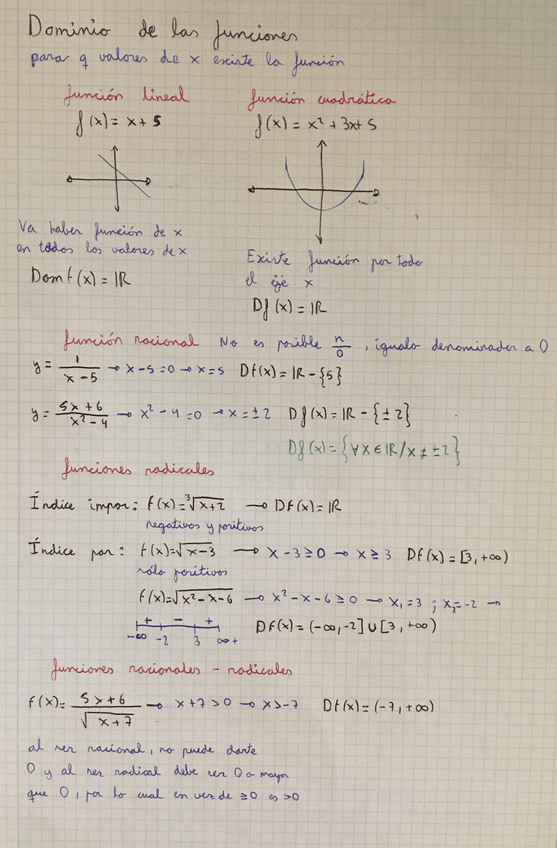 Dominio de las funciones
para q valores de x existe la función
función lineal
f(x) = x + 5
función cuadrática
f(x) = x² + 3x + 5
Va haber función de x
en todos los valores de x
Dom f(x) = ℝ
Existe función por todo
el eje x
Df(x) = ℝ
función racional No es posible n/0 , igualo denominador a 0
y = 1/(x-5) → x-5 = 0 → x = 5 Df(x) = ℝ - {5}
y = (5x+6)/(x²-4) → x²-4 = 0 → x = ±2 Df(x) = ℝ - {±2}
Df(x) = {∀x ∈ ℝ / x ≠ ±2}
funciones radicales
Índice impar: f(x) = ³√(x+2) → Df(x) = ℝ
negativos y positivos
Índice par: f(x) = √(x-3) → x-3 ≥ 0 → x ≥ 3 Df(x) = [3, +∞)
sólo positivos
f(x) = √(x²-x-6) → x²-x-6 ≥ 0 → x₁ = 3 ; x₂ = -2 →
+ - +
-∞ -2 3 ∞+ Df(x) = (-∞, -2] ∪ [3, +∞)
funciones racionales - radicales
f(x) = (5x+6)/√(x+7) → x+7 > 0 → x > -7 Df(x) = (-7, +∞)
al ser racional, no puede darte
0 y al ser radical debe ser 0 o mayor
que 0, por lo cual en vez de ≥0 es >0